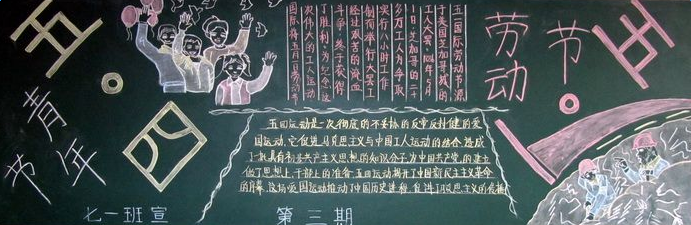 五·四
青年节
五一国际劳动节源
于美国芝加哥城的
工人大罢
1日,芝加哥的二十
多万工人为争取
实行八小时工作
制而举行大罢工
经过艰苦的流血
斗争,终于获得
了胜利。为纪念这
次伟大的工人运动
国际将五月一日劳动节
劳动节
五·一
五四运动是一次彻底的不妥协的反帝反封健的爱
国运动,它促进马克思主义与中国工人运动的结合,造成
了一批具有初步共产主义思想的知识分子,为中国共产党的建立
做了思想上,干部上的准备,五四运动揭开了中国新民主主义革命
的序幕,这场爱国运动推动了中国历史进程,促进了马克思主义的发扬
七一班宣
第三期